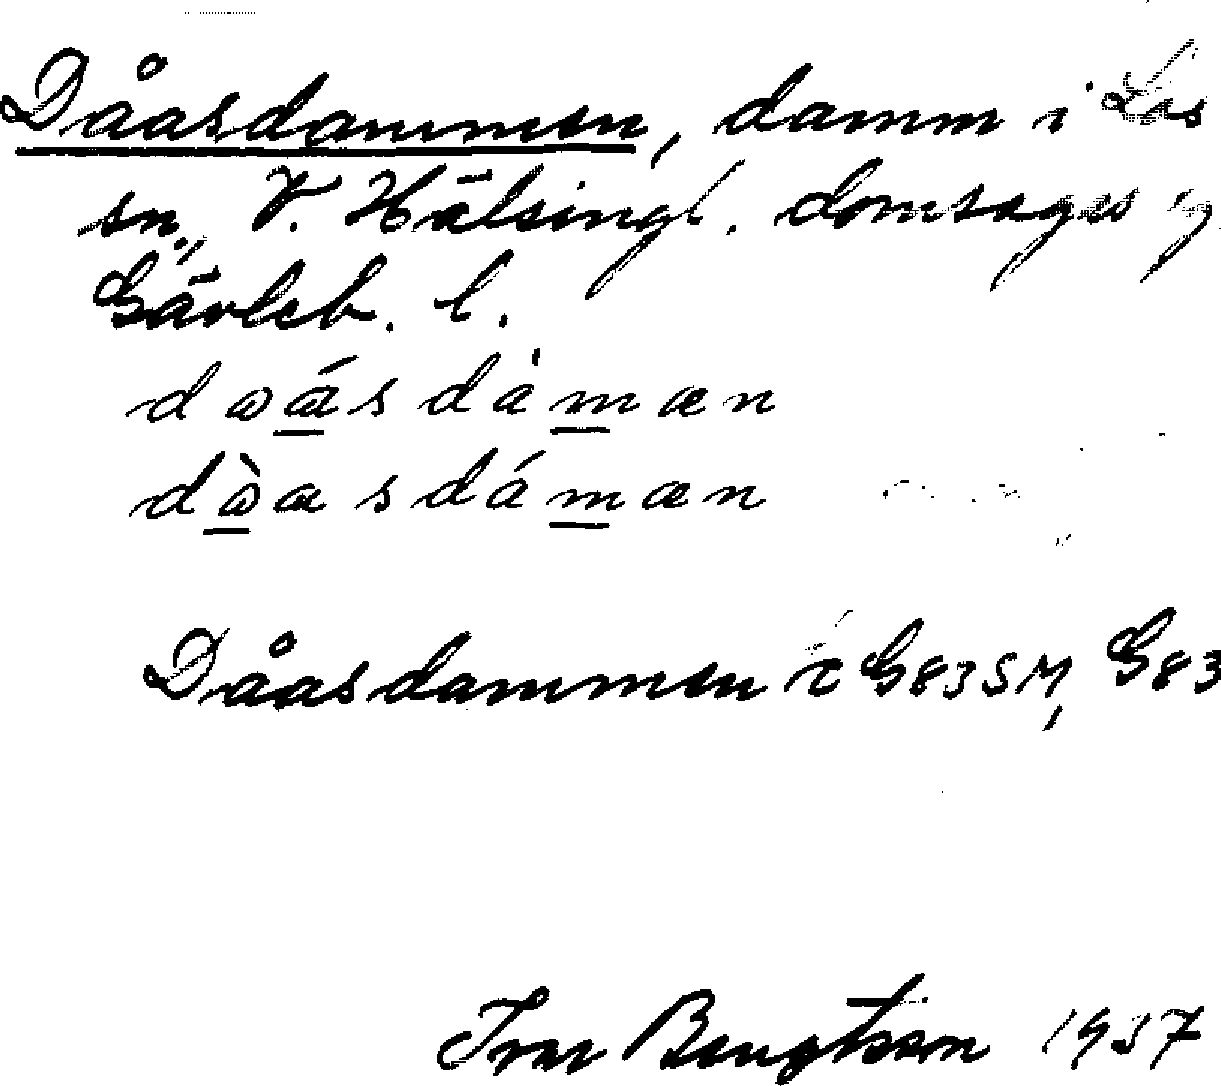 Dåasdammen, damm i Los
sn, V. Hälsingl. domsagas
Gävleb. l.
dꞷása̠sdàm̠æn
dꞷ̠̀asdám̠æn
Dåasdammen i G83SM, G83
Ivar Bengtsson 1937